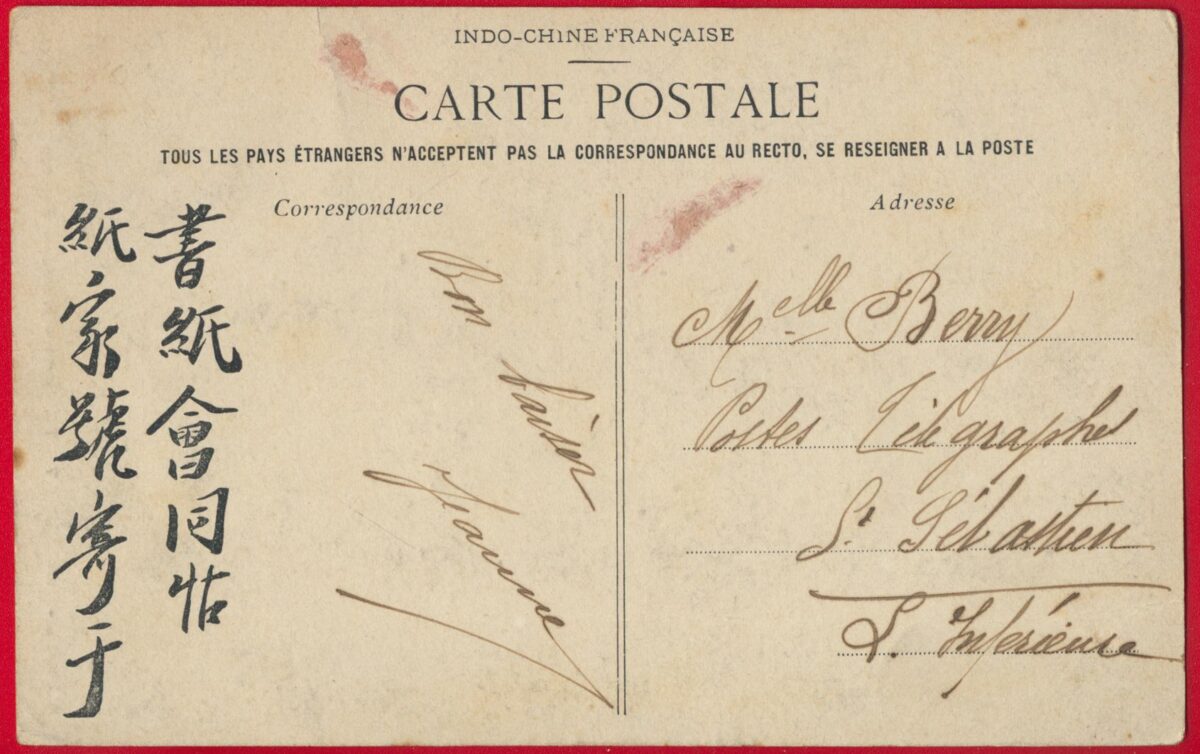 INDO-CHINE FRANÇAISE
CARTE POSTALE
TOUS LES PAYS ÉTRANGERS N'ACCEPTENT PAS LA CORRESPONDANCE AU RECTO, SE RESEIGNER A LA POSTE
Correspondance
書紙會同怗
紙家號寄于
Bon
baiser
Jeanne
Adresse
Melle Berry
Postes Télégraphes
St Sébastien
L. Inférieure